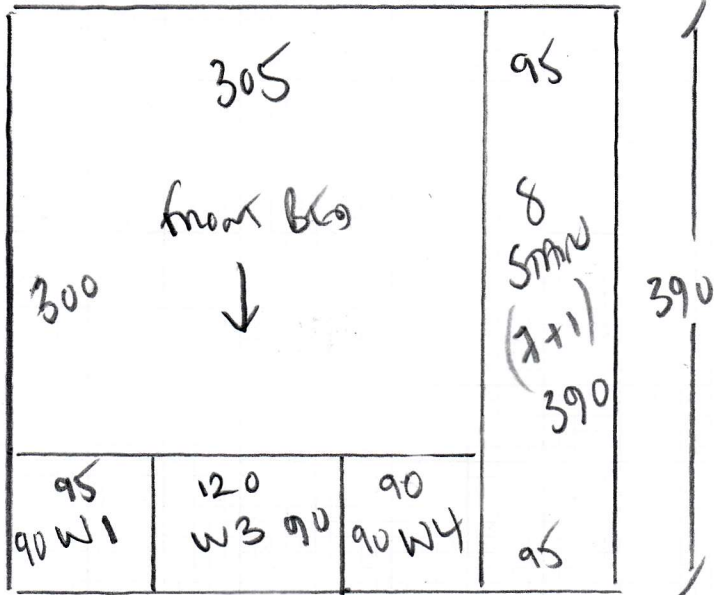 305
95
Front Bed
8
Stair
(7+1)
390
300
390
95
90 W1
120
W3 90
90
90 W4
95